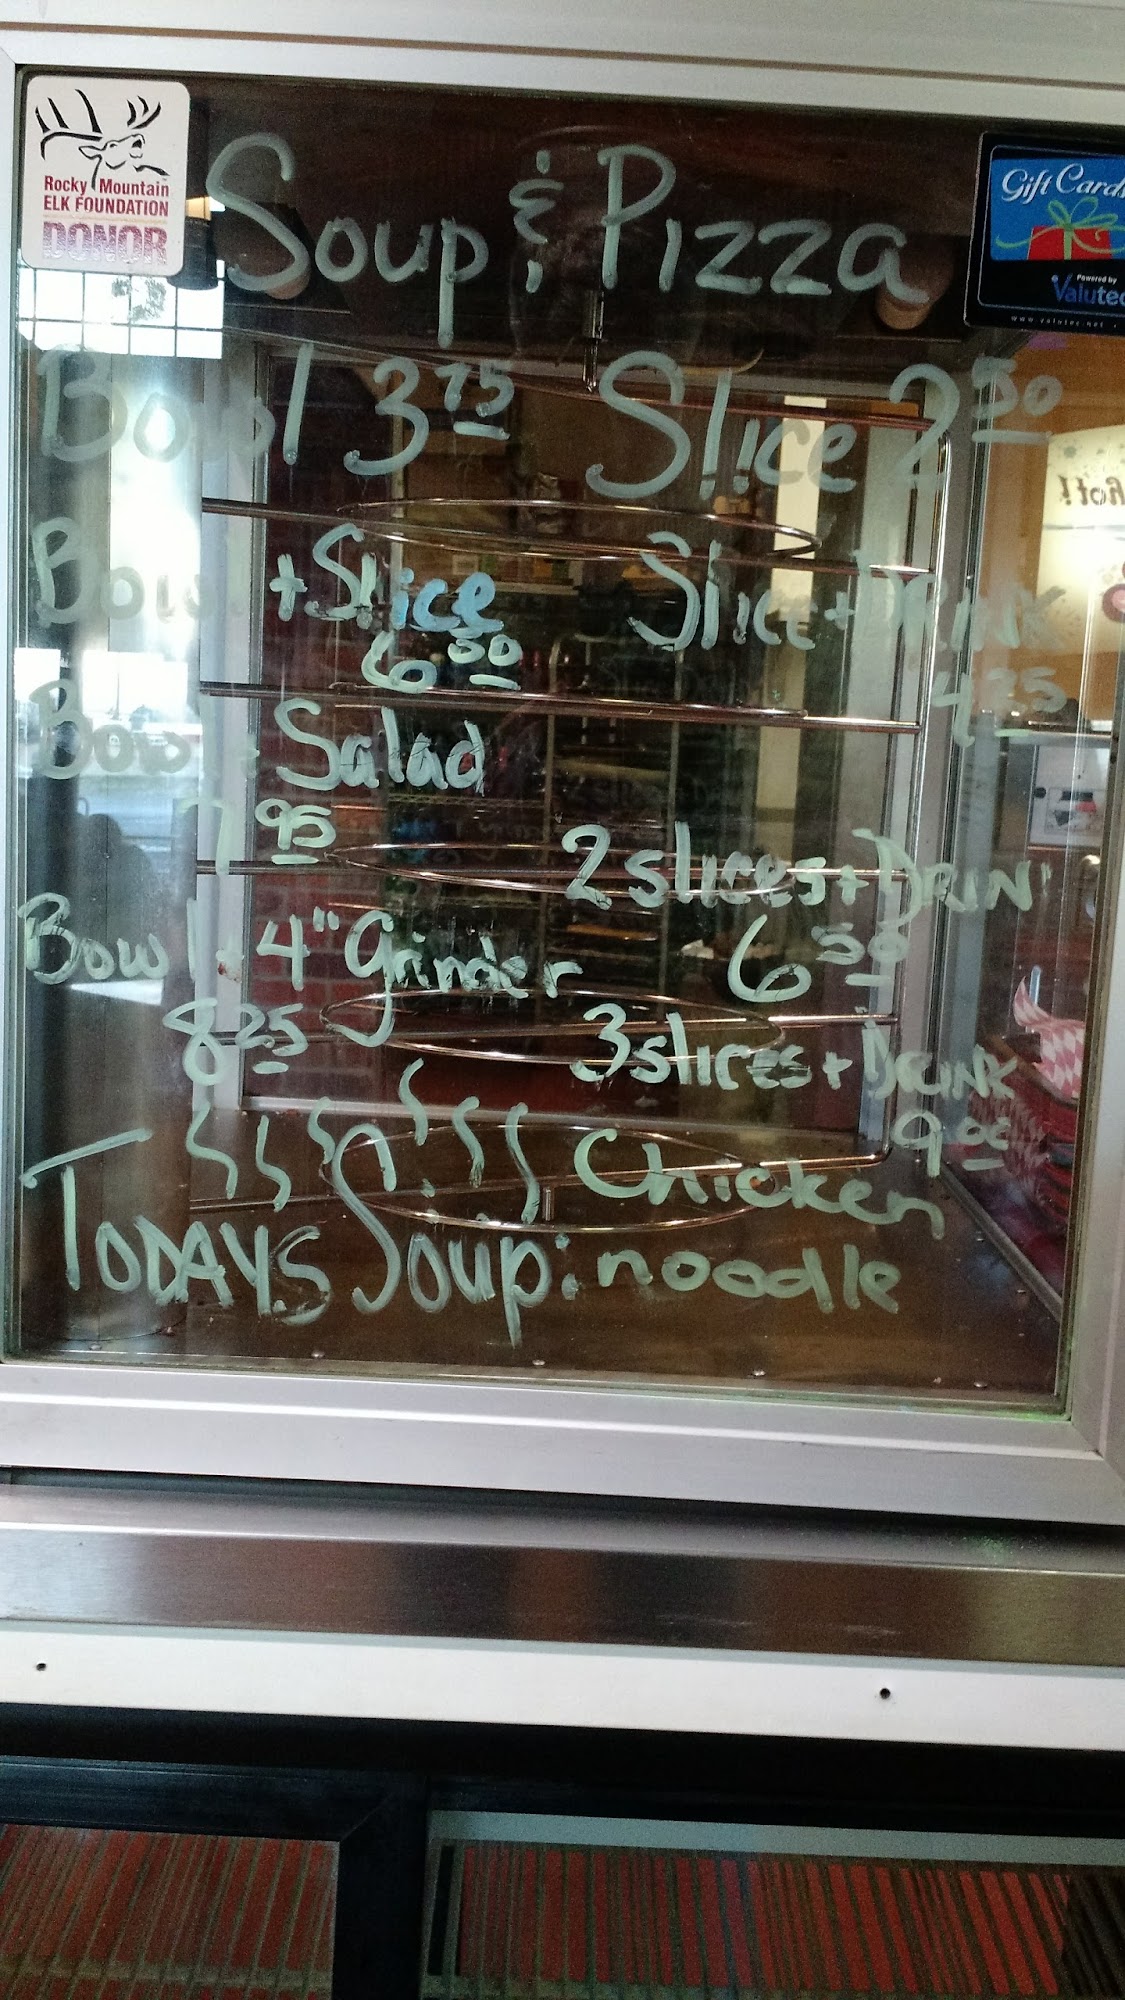 Rocky Mountain
ELK FOUNDATION
DONOR
Soup & Pizza
Gift Cards
Powered by
Valutec
www.valutec.net
Bowl 3 75
Slice 2 50
Bowl + Slice
6 00
Slice + Drink
4 25
Bowl + Salad
7 95
2 slices + DRIN
6 50
Bowl + 4" Grinder
8 25
3 slices + DRINK
9 00
hot!
TODAYS Soup: Chicken
noodle